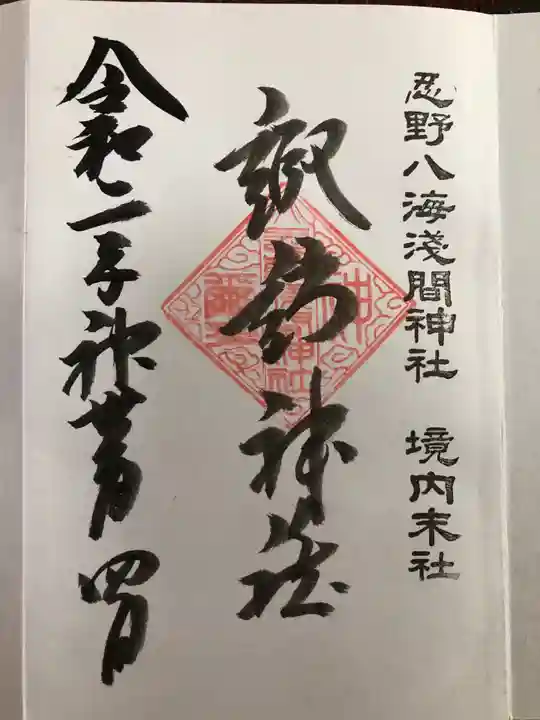 忍野八海淺間神社 境内末社
諏訪神社
令和二子神無月 四日